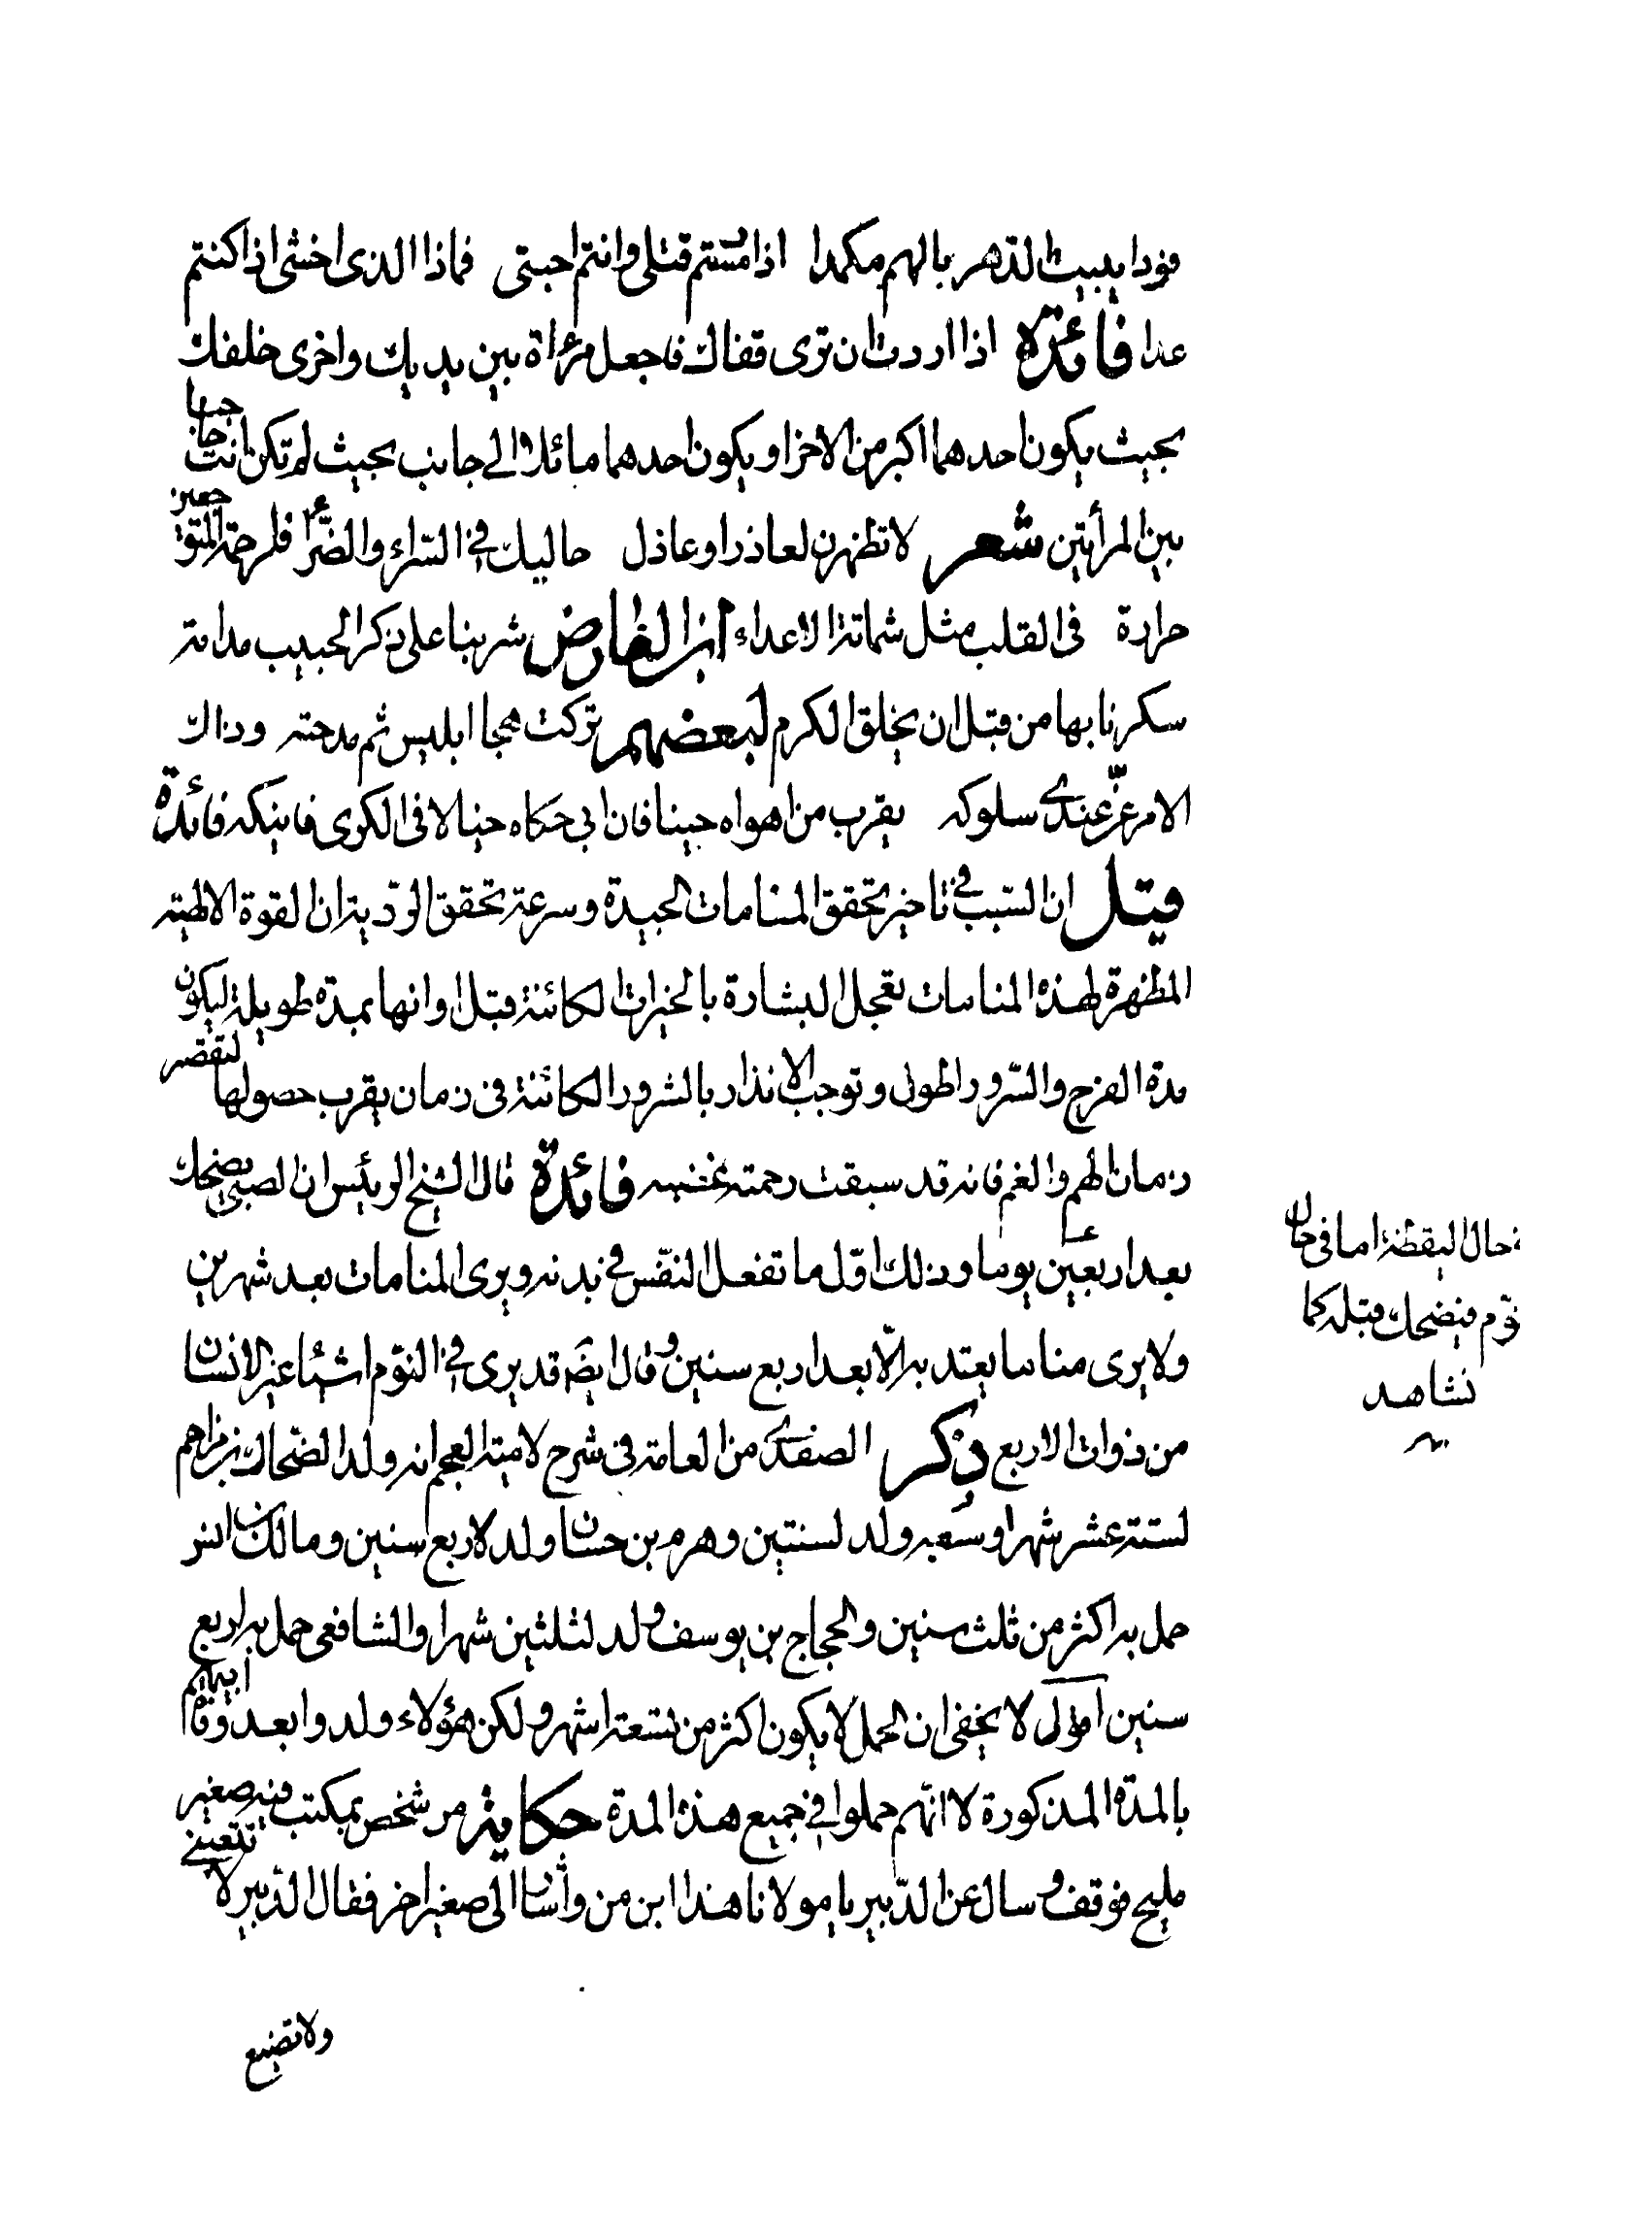 فؤدا يبيت الدهر بالهم مكمدا اذا شئتم قتلى وانتم احبتى فماذا الذى اخشى اذا كنتم
عدا فائدة اذا اردت ان ترى قفاك فاجعل مرءاة بين يديك واخرى خلفك
بحيث يكون احدهما اكبر من الاخر او يكون احدهما مائلا الى جانب بحيث لم تكن انت حاجبا
بين المرأتين شعر لا تظهرن لعاذر او عاذل حاليك فى السراء والضرّاء فلرحمة المتوجعين
حرارة فى القلب مثل شماتة الاعداء ابن الفارض شربنا على ذكر الحبيب مدامة
سكرنا بها من قبل ان يخلق الكرم لبعضهم تركت هجا ابليس ثم مدحته وذاك
الامر عزّ عندى سلوكه يقرب من اهواه حينا فان ابى حكاه خيالا فى الكرى فانيكه فائدة
قيل ان السبب فى تاخير تحقق المنامات الجيدة وسرعة تحقق الرّدية ان القوة الالهية
المظهرة لهذه المنامات تعجل البشارة بالخيرات الكائنة قبل اوانها بمدة طويلة ليكون
مدة الفرح والسّرور اطول وتوجب الانذار بالشرور الكائنة فى زمان يقرب حصولها لتقصر
زمان الهم والغم فانه قد سبقت رحمته غضبه فائدة قال الشيخ الرئيس ان الصبى يضحك
بعد اربعين يوما وذلك اوّل ما تفعل النفس فى بدنه ويرى المنامات بعد شهرين
ولا يرى مناما يعتد به الّا بعد اربع سنين وقال ايضا قد يرى فى النوّم اشياء غير الانسان
من ذوات الاربع ذكر الصفدى من العامة فى شرح لامية العجم انه ولد الضحاك بن مزاحم
لستة عشر شهرا وشعبه ولد لسنتين وهرم بن حسان ولد لاربع سنين ومالك بن انس
حمل به اكثر من ثلث سنين والحجاج بن يوسف ولد لثلثين شهرا والشافعى حمل به اربع
سنين اقول لا يخفى ان الحمل لا يكون اكثر من تسعة اشهر ولكن هؤلاء ولدوا بعد وفات ابيهم
بالمدة المذكورة لا انهم حملوا فى جميع هذه المدة حكاية مر شخص بمكتب فيه صغير
مليح فوقف وسال عن الدّبير يا مولانا هذا ابن من واشار الى صغير اخر فقال الدّبير لا تتعبنى
ولا تضيع
حال اليقظة اما فى حال
نوّم فيضحك قبله كما
نشاهد